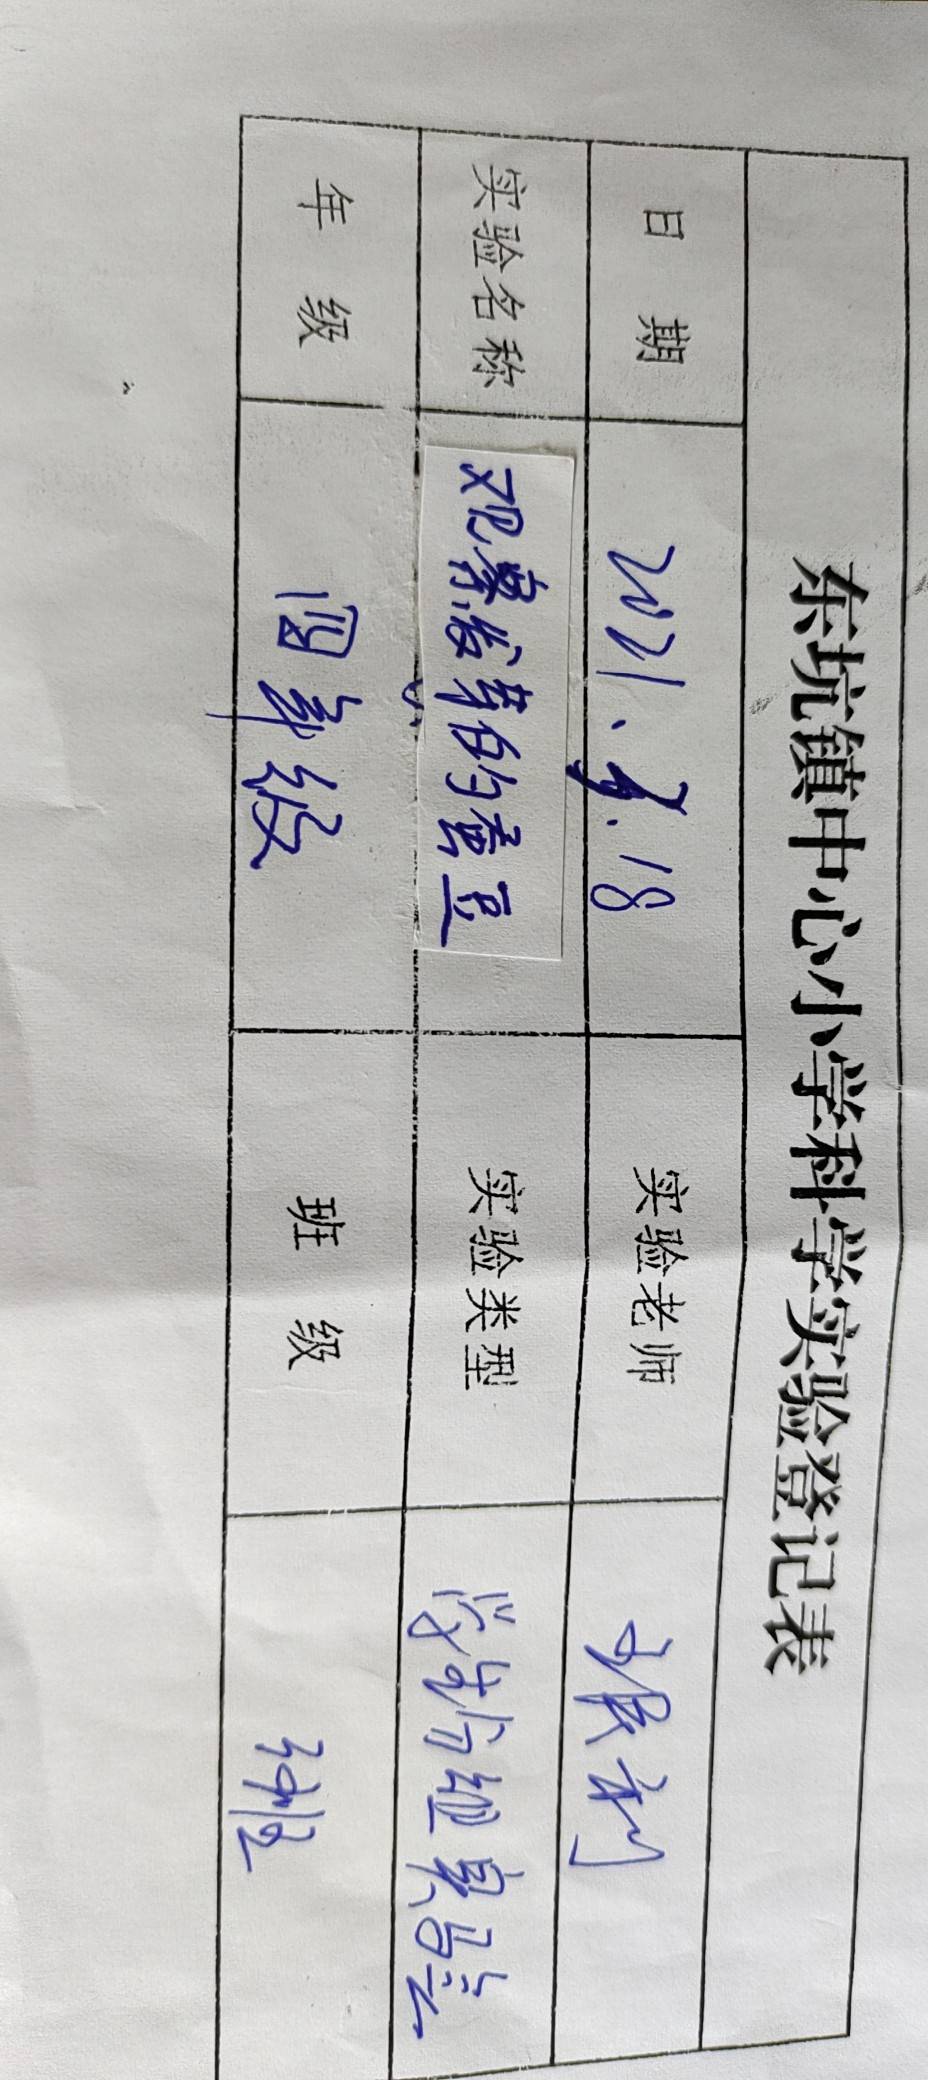 东坑镇中心小学科学实验登记表
日 期 2021. .18 实验老师 张利
实验名称 观察发芽的蚕豆 实验类型 学生分组实验
年 级 四年级 班 级 班